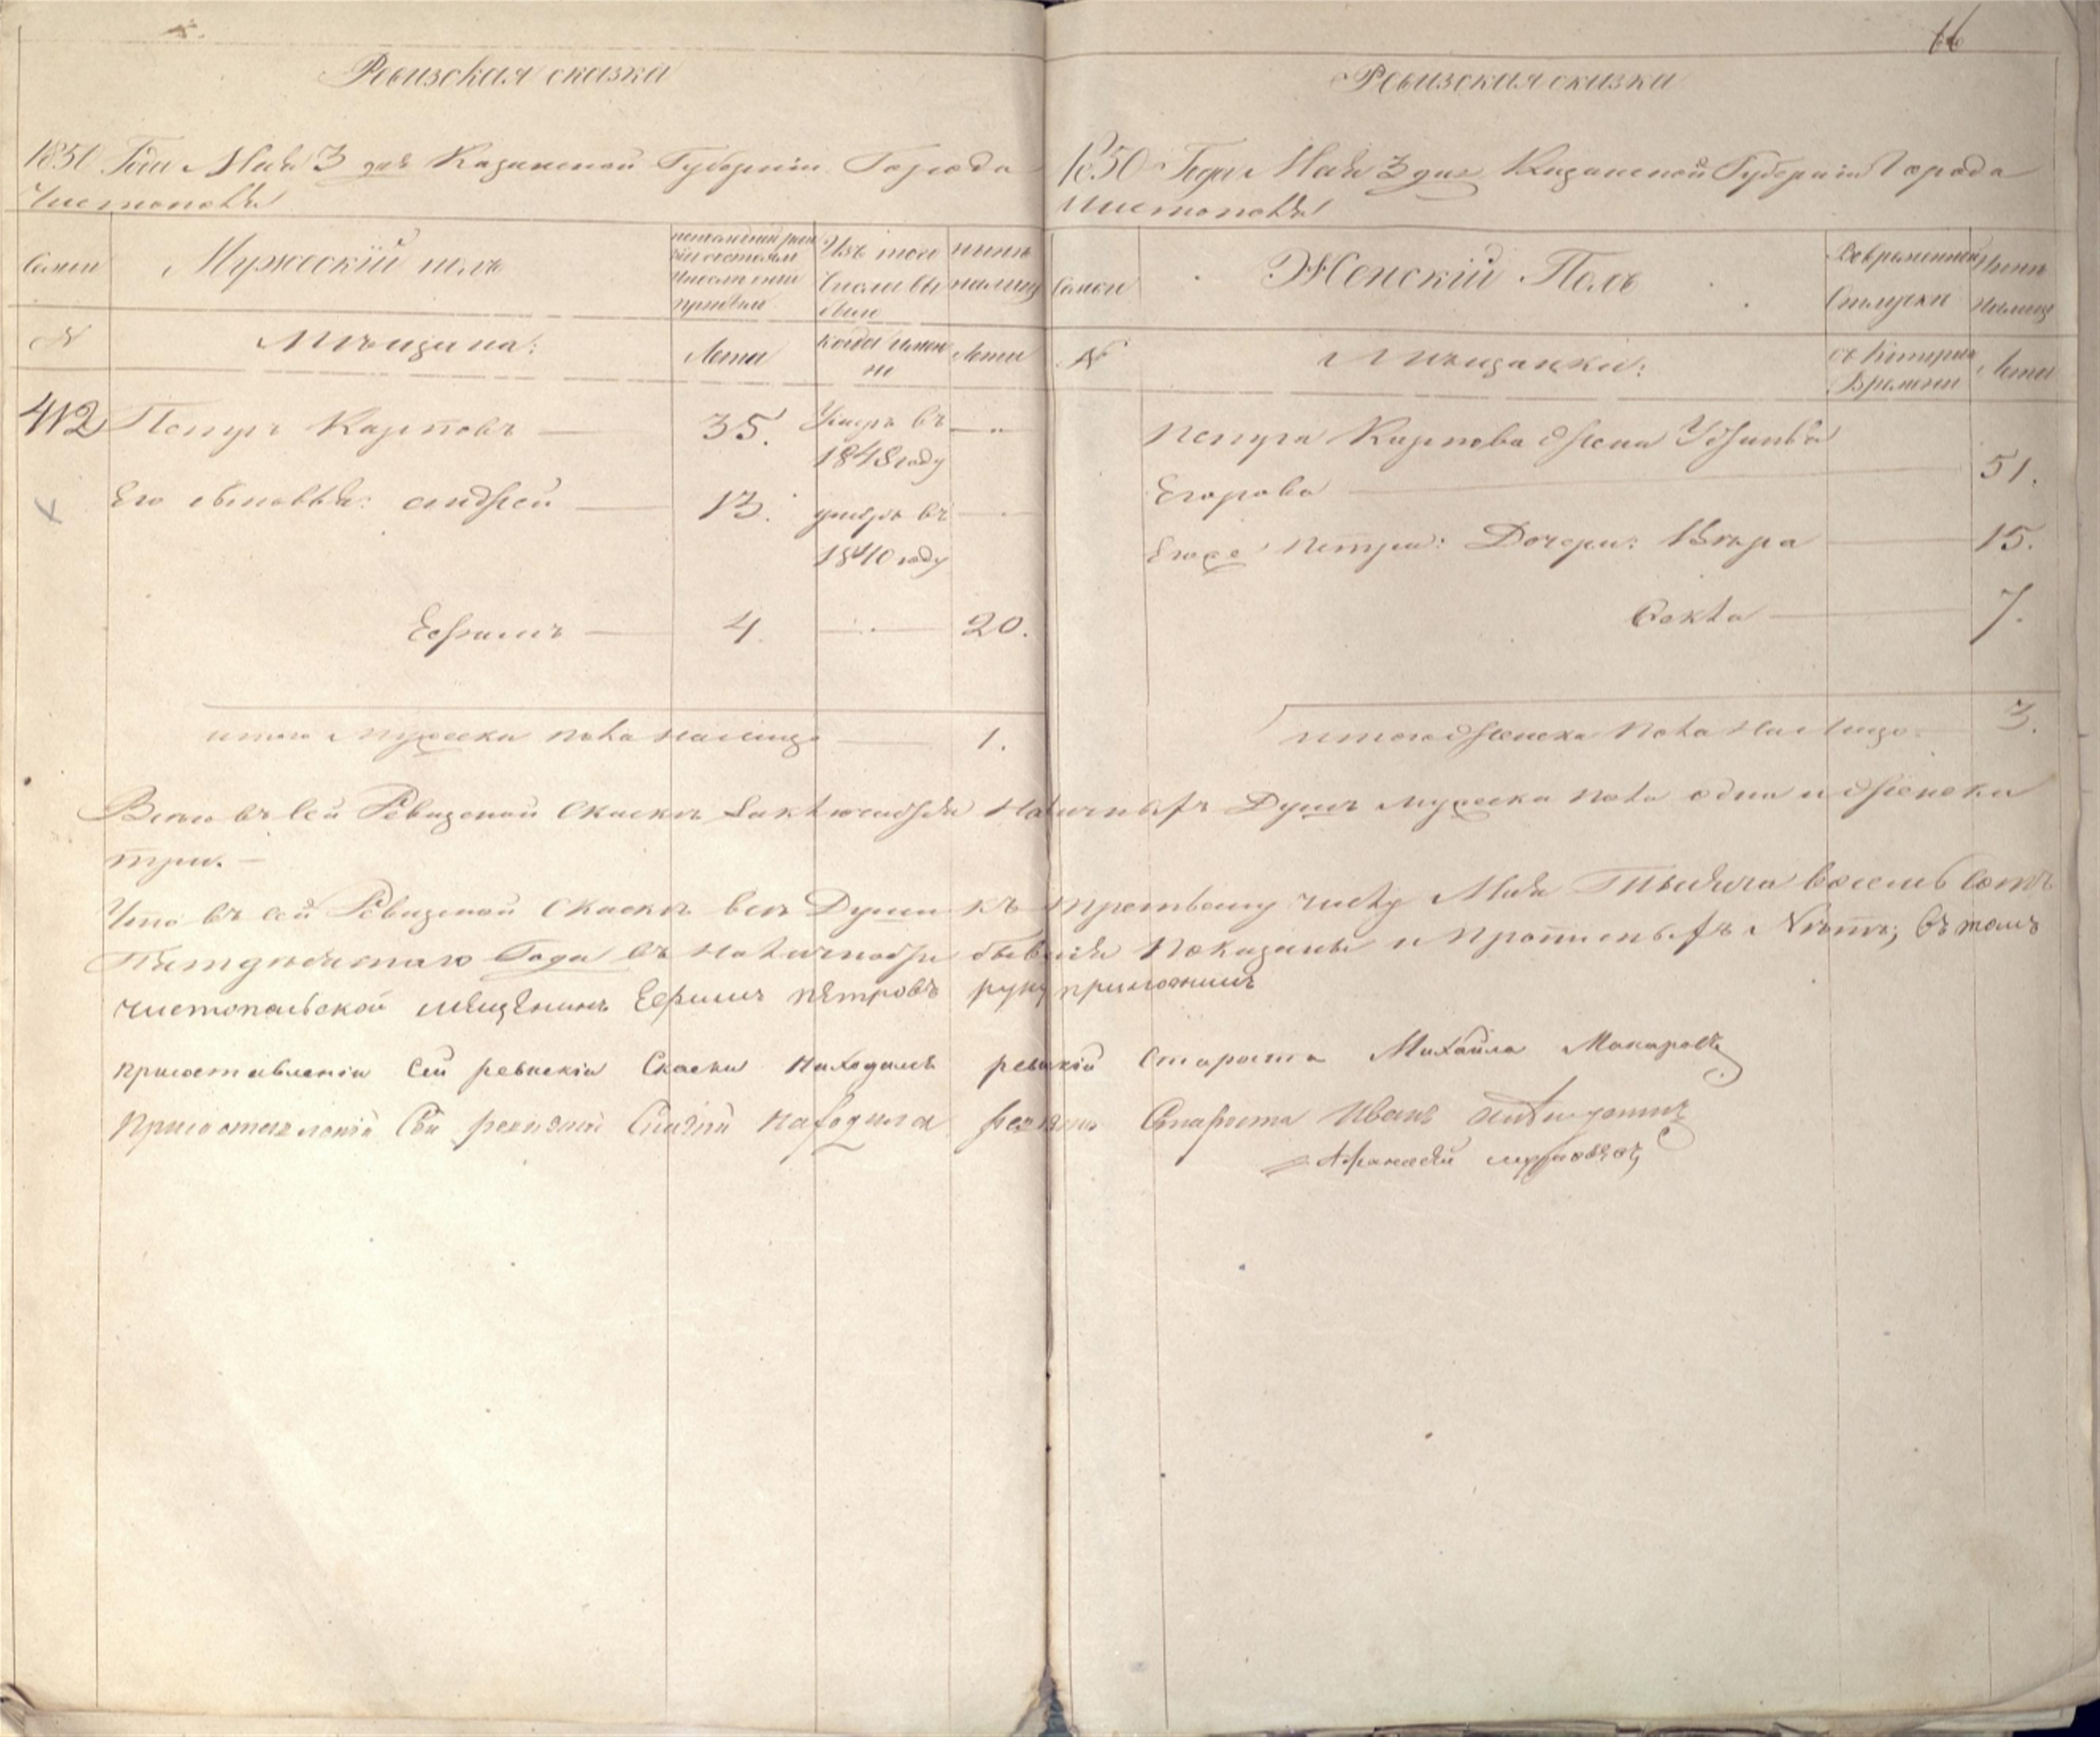 66
Ревизская сказка
1850 Года Мая 3 дня Казанской Губернiи Города
Чистополя
Семьи
Мужескiй полъ
Изъ того
Числа вы
было
нынѣ
налицо
№
Мѣщана:
Лета
когда имен
но
Лета
412 Петръ Карповъ — 35. Умеръ въ
1848 году
Его сыновья: Андрей — 13. умеръ въ
1840 году
Ефимъ — 4. 20.
итого Мужеска пола налицо — 1.
Ревизская сказка
1850 Года Мая 3 дня Казанской Губернiи Города
Чистополя
Семьи
Женскiй Полъ
Во временной
Отлучки
Нынѣ
налицо
№
Мѣщанки:
съ Котораго
Времени
Лета
Петра Карпова жена Устинья
Егорова — 51.
Егоже Петра: Дочери: Вѣра — 15.
Фекла — 7.
итого женска пола на лицо — 3.
Всего въ сей Ревизской Скаскѣ Заключается Наличныхъ Душъ мужеска пола одна и женска
три. —
Что въ сей Ревизской Скаскѣ все Души къ третьему числу Мая Тысяча восемь сотъ
Пятдесятаго Года въ Наличности бывшiя Показаны и Прописныхъ Нѣтъ; въ томъ
чистопольской мещенинъ Ефимъ петровъ руку приложилъ
при составленiи сей ревискiи Скаски находилъ ревискiй Староста Михайла Макаровъ
При составленiи Сей Находился Староста Иванъ
Афанасей